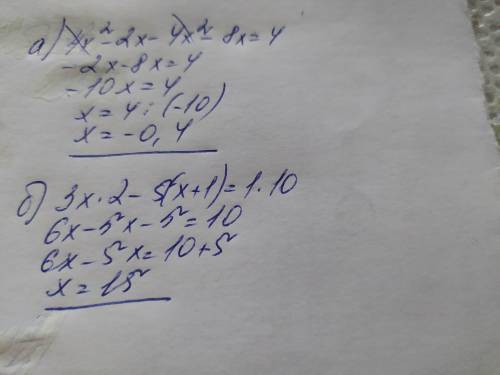 а) 4x² - 2x - 4x² - 8x = 4
- 2x - 8x = 4
- 10x = 4
x = 4 : (-10)
x = -0,4
б) 3x · 2 - 5(x+1) = 1 · 10
6x - 5x - 5 = 10
6x - 5x = 10 + 5
x = 15